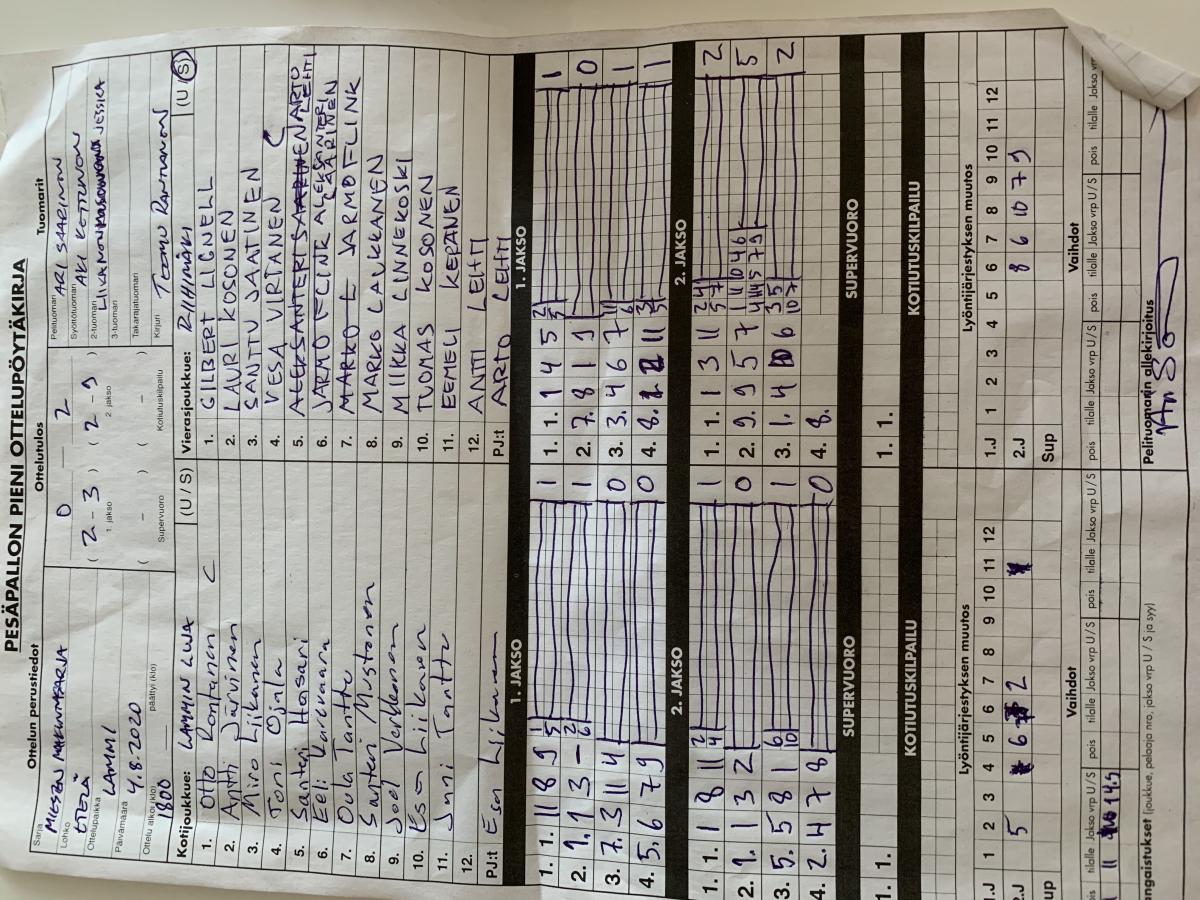 PESÄPALLON PIENI OTTELUPÖYTÄKIRJA
Ottelun perustiedot
Ottelutulos
Tuomarit
Sarja
MIESTEN MAAKUNTASARJA
Lohko
ETELÄ
Ottelupaikka
LAMMI
Päivämäärä
4.8.2020
Ottelu alkoi (klo)
1800
päättyi (klo)
0 2
( 2 - 3 ) ( 2 - 9 )
1. jakso 2. jakso
( - ) ( - )
Supervuoro Kotiutuskilpailu
Pelituomari ARI SAARINEN
Syöttötuomari AKI KETTUNEN
2-tuomari JESSICA
3-tuomari
Takarajatuomari
Kirjuri TUOMO RANTANEN
Kotijoukkue: LAMMIN LUJA (U / S)
1. Otto Rantanen C
2. Antti Järvinen
3. Miro Liikanen
4. Toni Ojala
5. Santeri Hossari
6. Eeli Varevaara
7. Oula Tanttu
8. Santeri Mustonen
9. Joel Verkamen
10. Esa Liikanen
11. Juni Tanttu
12.
PJ:t Esa Liikanen
Vierasjoukkue: RIIHIMÄKI (U / S)
1. GILBERT LIGNELL
2. LAURI KOSONEN
3. SANTTU JAATINEN
4. VESA VIRTANEN C
5. ARTO LEHTI
6. ALEKSANTERI SAARINEN
7. JARMO FLINK
8. MARKO LAUKKANEN
9. MIIKKA LINNEKOSKI
10. TUOMAS KOSONEN
11. EEMELI KEPANEN
12. ANTTI LEHTI
PJ:t ARTO LEHTI
1. JAKSO
1. 1. 11 8 9 1 5 1
2. 1. 1 3 - 2 6 1
3. 7. 3 11 4 0
4. 5. 6 7 9 0
1. JAKSO
1. 1. 1 4 5 2 5 1
2. 7. 8 1 9 0
3. 3. 4 6 7 11 6 1
4. 8. 11 1
2. JAKSO
1. 1. 1 8 11 2 4 1
2. 9. 1 3 2 0
3. 5. 5 8 1 6 10 1
4. 2. 4 7 8 0
2. JAKSO
1. 1. 1 3 11 2 4 5 7 2
2. 9. 9 5 7 11 10 4 6 5 7 9 5
3. 1. 4 10 6 3 5 10 7 2
4. 8.
SUPERVUORO
1. 1.
SUPERVUORO
1. 1.
KOTIUTUSKILPAILU
KOTIUTUSKILPAILU
Lyöntijärjestyksen muutos
1.J 1 2 3 4 5 6 7 8 9 10 11 12
2.J 5 6 2
Sup
Lyöntijärjestyksen muutos
1.J 1 2 3 4 5 6 7 8 9 10 11 12
2.J 8 6 10 7 9
Sup
Vaihdot
pois tilalle Jakso vrp U / S pois tilalle Jakso vrp U / S pois tilalle Jakso vrp U / S
11 1 4 S
Vaihdot
pois tilalle Jakso vrp U / S pois tilalle Jakso vrp U / S pois tilalle Jakso vrp
Rangaistukset (joukkue, pelaaja nro, jakso vrp U / S ja syy)
Pelituomarin allekirjoitus